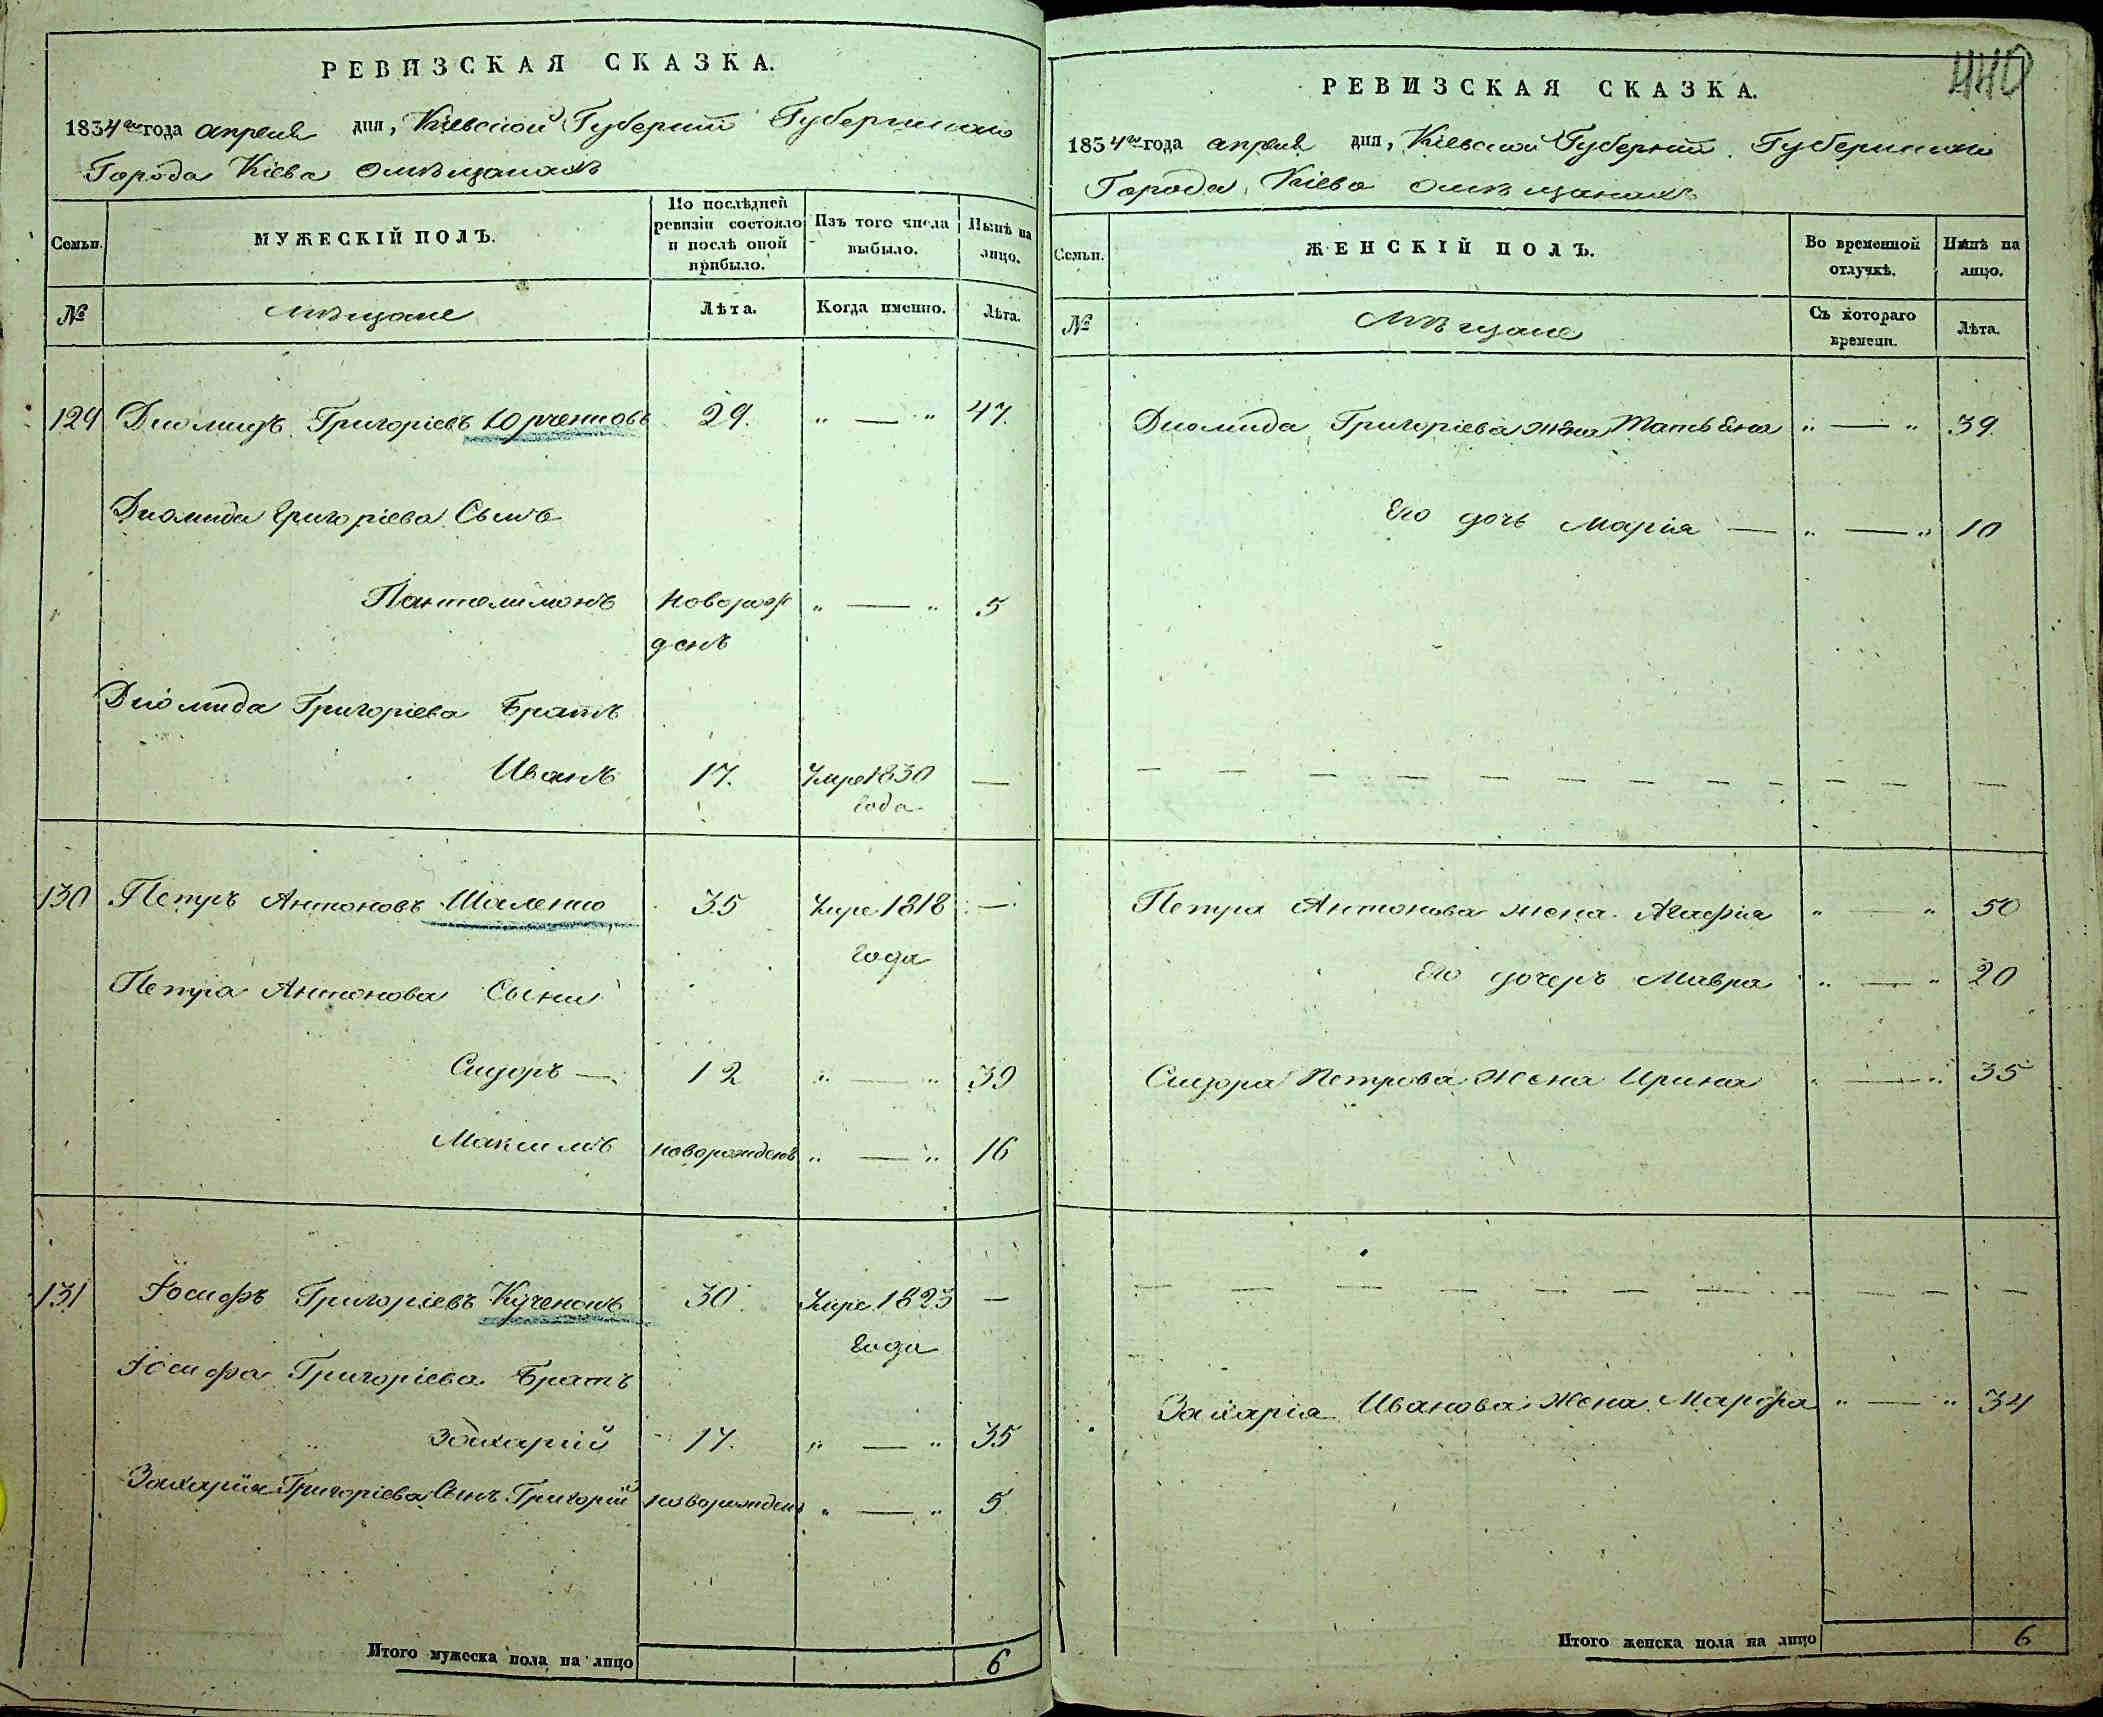 РЕВИЗСКАЯ СКАЗКА.
1834го года апреля дня, Кіевской Губерніи Губернскаго
Города Кіева омѣщанахъ
Семьи.
МУЖЕСКІЙ ПОЛЪ.
По послѣдней ревизіи состояло и послѣ оной прибыло.
Изъ того числа выбыло.
Нынѣ на лицо.
№
Мѣщане
Лѣта.
Когда именно.
Лѣта.
129 Диомидъ Григоріевъ Юрченковъ 29. " — " 47.
Диомида Григоріева Сынъ
Пантелимонъ новорож " — " 5
денъ
Диомида Григоріева Братъ
Иванъ 17. Умре 1830 —
года
130 Петръ Антоновъ Шаленко 35 Умре 1818 —
года
Петра Антонова Сыни
Сидоръ — 12 " — " 39
Максимъ новорожденъ " — " 16
131 Іосифъ Григоріевъ Кученокъ 30. Умре 1823 —
года
Іосифа Григоріева Братъ
Захарій 17. " — " 35
Захарія Григоріева Сынъ Григорій новорожденъ " — " 5
Итого мужеска пола на лицо 6
440
РЕВИЗСКАЯ СКАЗКА.
1834го года апреля дня, Кіевской Губерніи Губернскаго
Города Кіева омѣщанахъ
Семьи.
ЖЕНСКІЙ ПОЛЪ.
Во временной отлучкѣ.
Нынѣ на лицо.
№
Мѣщане
Съ котораго времени.
Лѣта.
Диомида Григоріева жена Татьяна " — " 39
Его дочь Марія — " — " 10
— — — — — — — — — — —
Петра Антонова жена Агафія " — " 50
Его дочеръ Мавра " — " 20
Сидора Петрова Жена Ирина " — " 35
— — — — — — — — — — —
Захарія Иванова Жена Марфа " — " 34
Итого женска пола на лицо 6